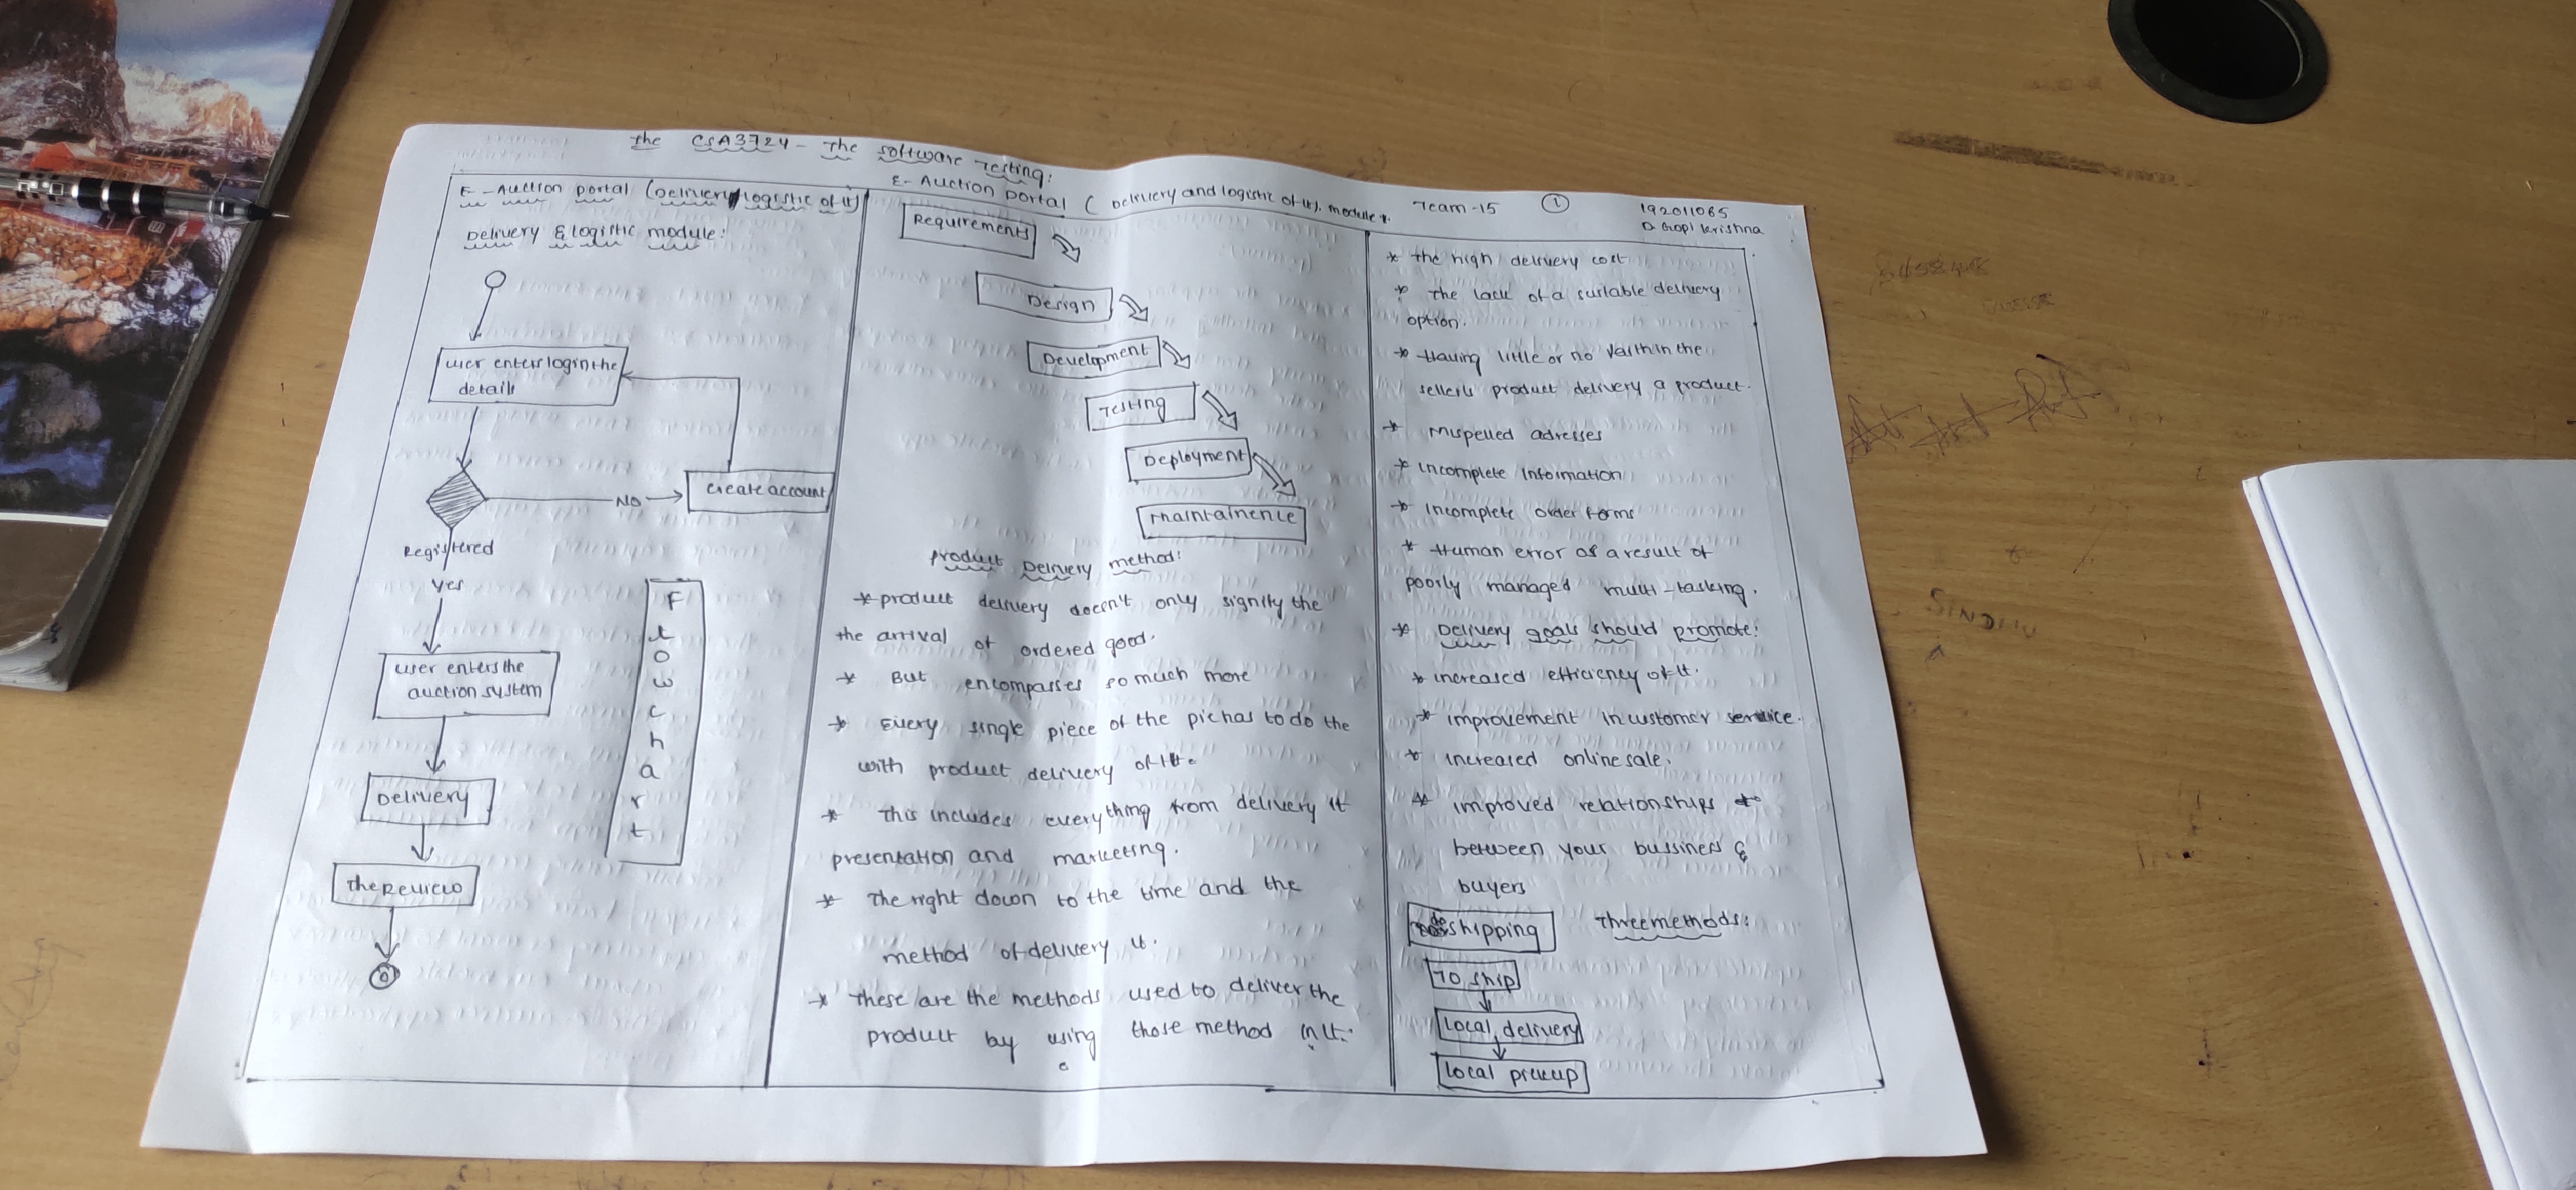 the CSA3724 - The software Testing:
Team -15
1
192011085
D. Gopi krishna
E - Auction portal (Delivery logistic of it)
Delivery & logistic module:
user enters login the
details
No
create account
Registered
Yes
user enters the
auction system
Delivery
The Review
F
l
o
w
c
h
a
r
t
E - Auction portal ( Delivery and logistic of it), module 1.
Requirements
Design
Development
Testing
Deployment
Maintainence
product Delivery method:
* product delivery doesn't only signify the
the arrival of ordered good.
* But encompasses so much more
* Every single piece of the pic has to do the
with product delivery of it.
* This includes everything from delivery it
presentation and marketing.
* The right down to the time and the
method of delivery it.
* These are the methods used to deliver the
product by using those method in it.
* The high delivery cost
* The lack of a suitable delivery
option.
* Having little or no faith in the
sellers product delivery a product.
* Mispelled adresses
* Incomplete Information
* Incomplete order forms
* Human error as a result of
poorly managed multi-tasking.
* Delivery goals should promote:
* increased efficiency of it.
* improvement in customer service.
* increased online sale.
* improved relationships
between your bussiness &
buyers
shipping
Three methods:
To ship
local delivery
local pickup
SINDHU